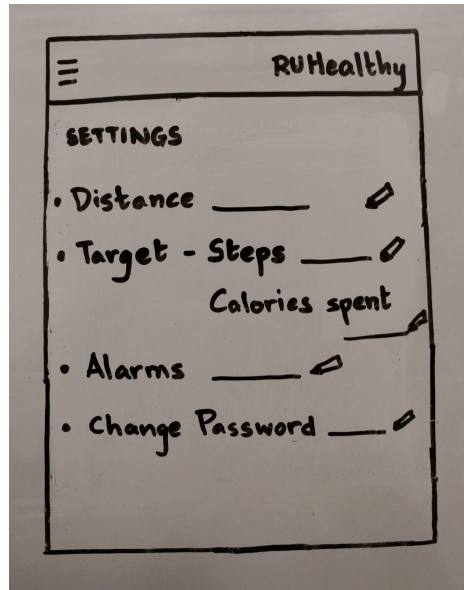 RUHealthy
SETTINGS
• Distance ____
• Target - Steps ____
Calories spent ____
• Alarms ____
• Change Password ____